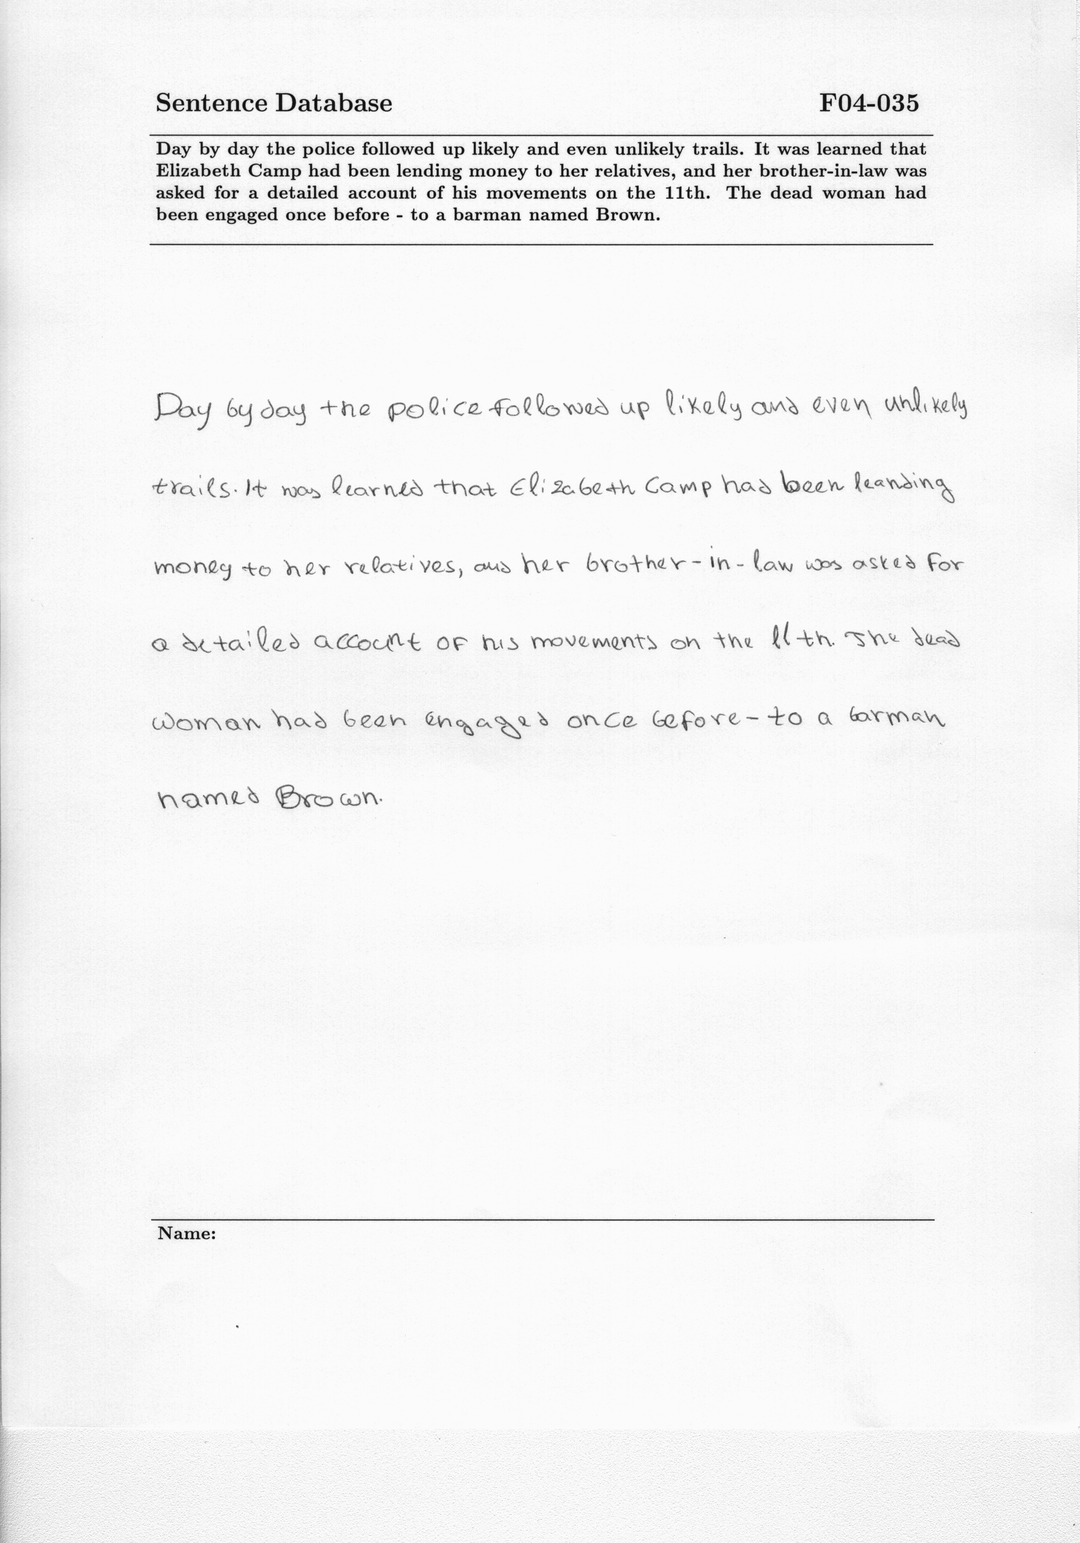 Sentence Database F04-035
Day by day the police followed up likely and even unlikely trails. It was learned that
Elizabeth Camp had been lending money to her relatives, and her brother-in-law was
asked for a detailed account of his movements on the 11th. The dead woman had
been engaged once before - to a barman named Brown.
Day by day the police followed up likely and even unlikely
trails. It was learned that Elizabeth Camp had been leanding
money to her relatives, and her brother-in-law was asked for
a detailed account of his movements on the 11th. The dead
woman had been engaged once before - to a barman
named Brown.
Name: